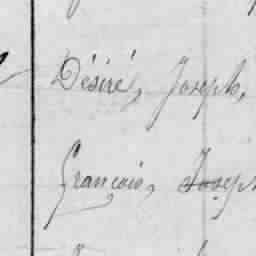 Désiré, Joseph,
François, Joseph